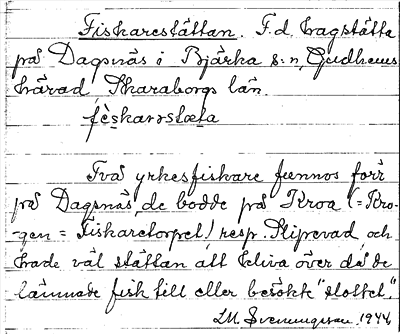 Fiskarestättan. F.d. tragstätta
på Dagsnäs i Bjärka s:n, Gudhems
härad Skaraborgs län.
Två yrkesfiskare funnos förr
på Dagsnäs, de bodde på Kroa (=Kro-
-gen = Fiskaretorpet) resp. Slipevad och
hade väl stättan att kliva över då de
lämnade fisk till eller besökte "slottet".
Svenungsson 1944